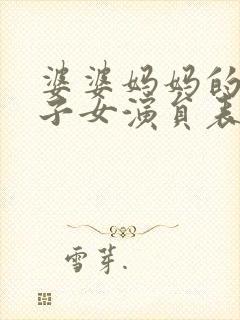 婆婆妈妈的
子女演员表
雪芽.